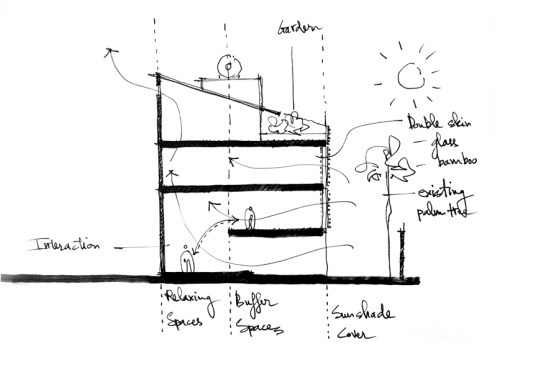 Garden
Double skin
glass
bamboo
existing
palm tree
Interaction
Relaxing
Spaces
Buffer
Spaces
Sunshade
Cover